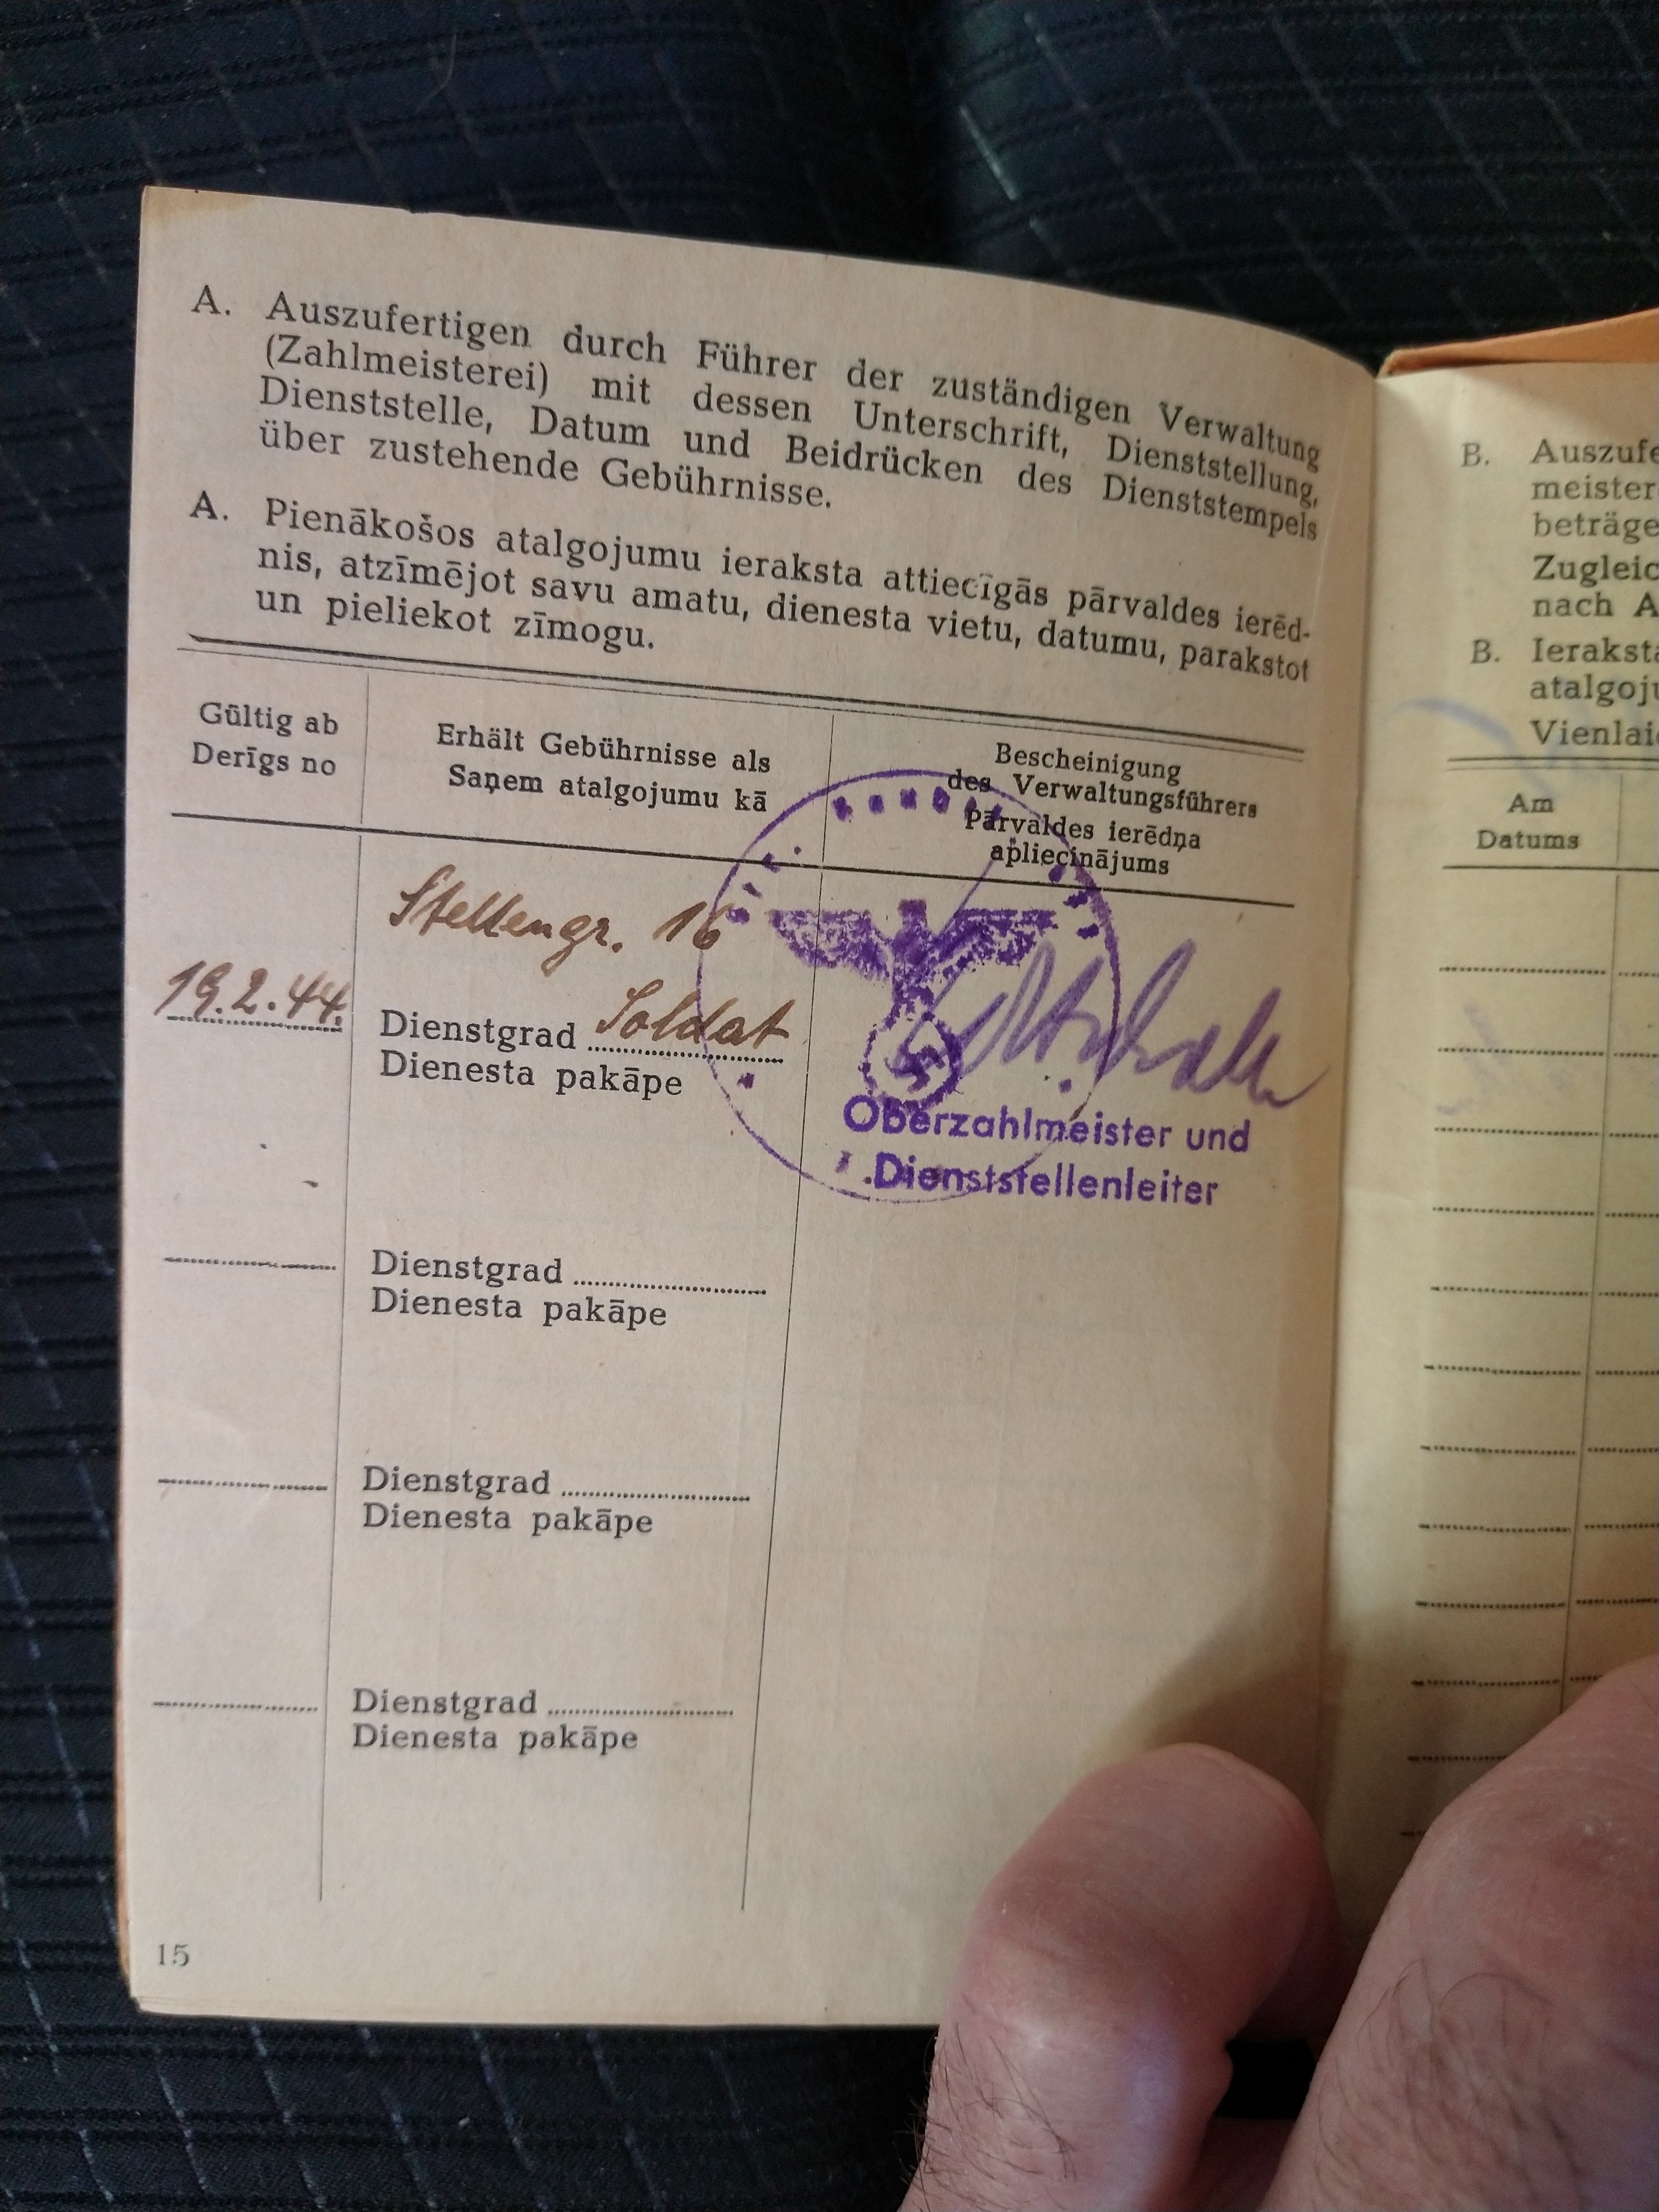 A. Auszufertigen durch Führer der zuständigen Verwaltung
(Zahlmeisterei) mit dessen Unterschrift, Dienststellung,
Dienststelle, Datum und Beidrücken des Dienststempels
über zustehende Gebührnisse.
A. Pienākošos atalgojumu ieraksta attiecīgās pārvaldes ierēd-
nis, atzīmējot savu amatu, dienesta vietu, datumu, parakstot
un pieliekot zīmogu.
Gültig ab
Derīgs no
Erhält Gebührnisse als
Saņem atalgojumu kā
Bescheinigung
des Verwaltungsführers
Pārvaldes ierēdņa
apliecinājums
Stellengr. 16
19.2.44.
Dienstgrad Soldat
Dienesta pakāpe
Oberzahlmeister und
Dienststellenleiter
Dienstgrad
Dienesta pakāpe
Dienstgrad
Dienesta pakāpe
Dienstgrad
Dienesta pakāpe
15
B. Auszufe
meister
beträge
Zugleic
nach A
B. Ieraksta
atalgoju
Vienlai
Am
Datums